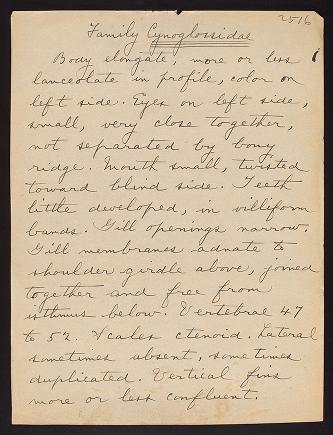 2516
Family Cynoglossidae
Body elongate, more or less
lanceolate in profile, color on
left side. Eyes on left side,
small, very close together,
not separated by bony
ridge. Mouth small, twisted
toward blind side. Teeth
little developed, in villiform
bands. Gill openings narrow.
Gill membranes adnate to
shoulder girdle above, joined
together and free from
isthmus below. Vertebrae 47
to 52. Scales ctenoid. Lateral
sometimes absent, sometimes
duplicated. Vertical fins
more or less confluent.